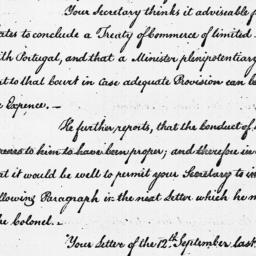 Your Secretary thinks it adviseable f
ates to conclude a Treaty of Commerce of limited
ith Portugal, and that a Minister plenipotentiary
t to that Court in case adequate Provision can be
e Expence. —
He further reports, that the Conduct of
to him to have been proper; and therefore in
at it would be well to permit your Secretary to in
llowing Paragraph in the next Letter which he m
he Colonel. —
"Your Letter of the 12th September last